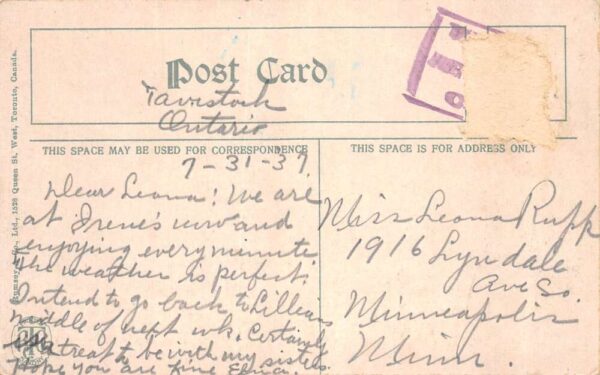 Post Card
Tavistock
Ontario
THIS SPACE MAY BE USED FOR CORRESPONDENCE
THIS SPACE IS FOR ADDRESS ONLY
7-31-37
Dear Leona: We are
at Irene's now and
enjoying every minute
The weather is perfect.
Intend to go back to Lillians
middle of next wk. Certainly
a treat to be with my sisters.
Hope you are fine Edna.
Miss Leona Rupp
1916 Lyndale
Ave So.
Minneapolis
Minn.
& Co., Ltd., 1528 Queen St. West, Toronto, Canada.